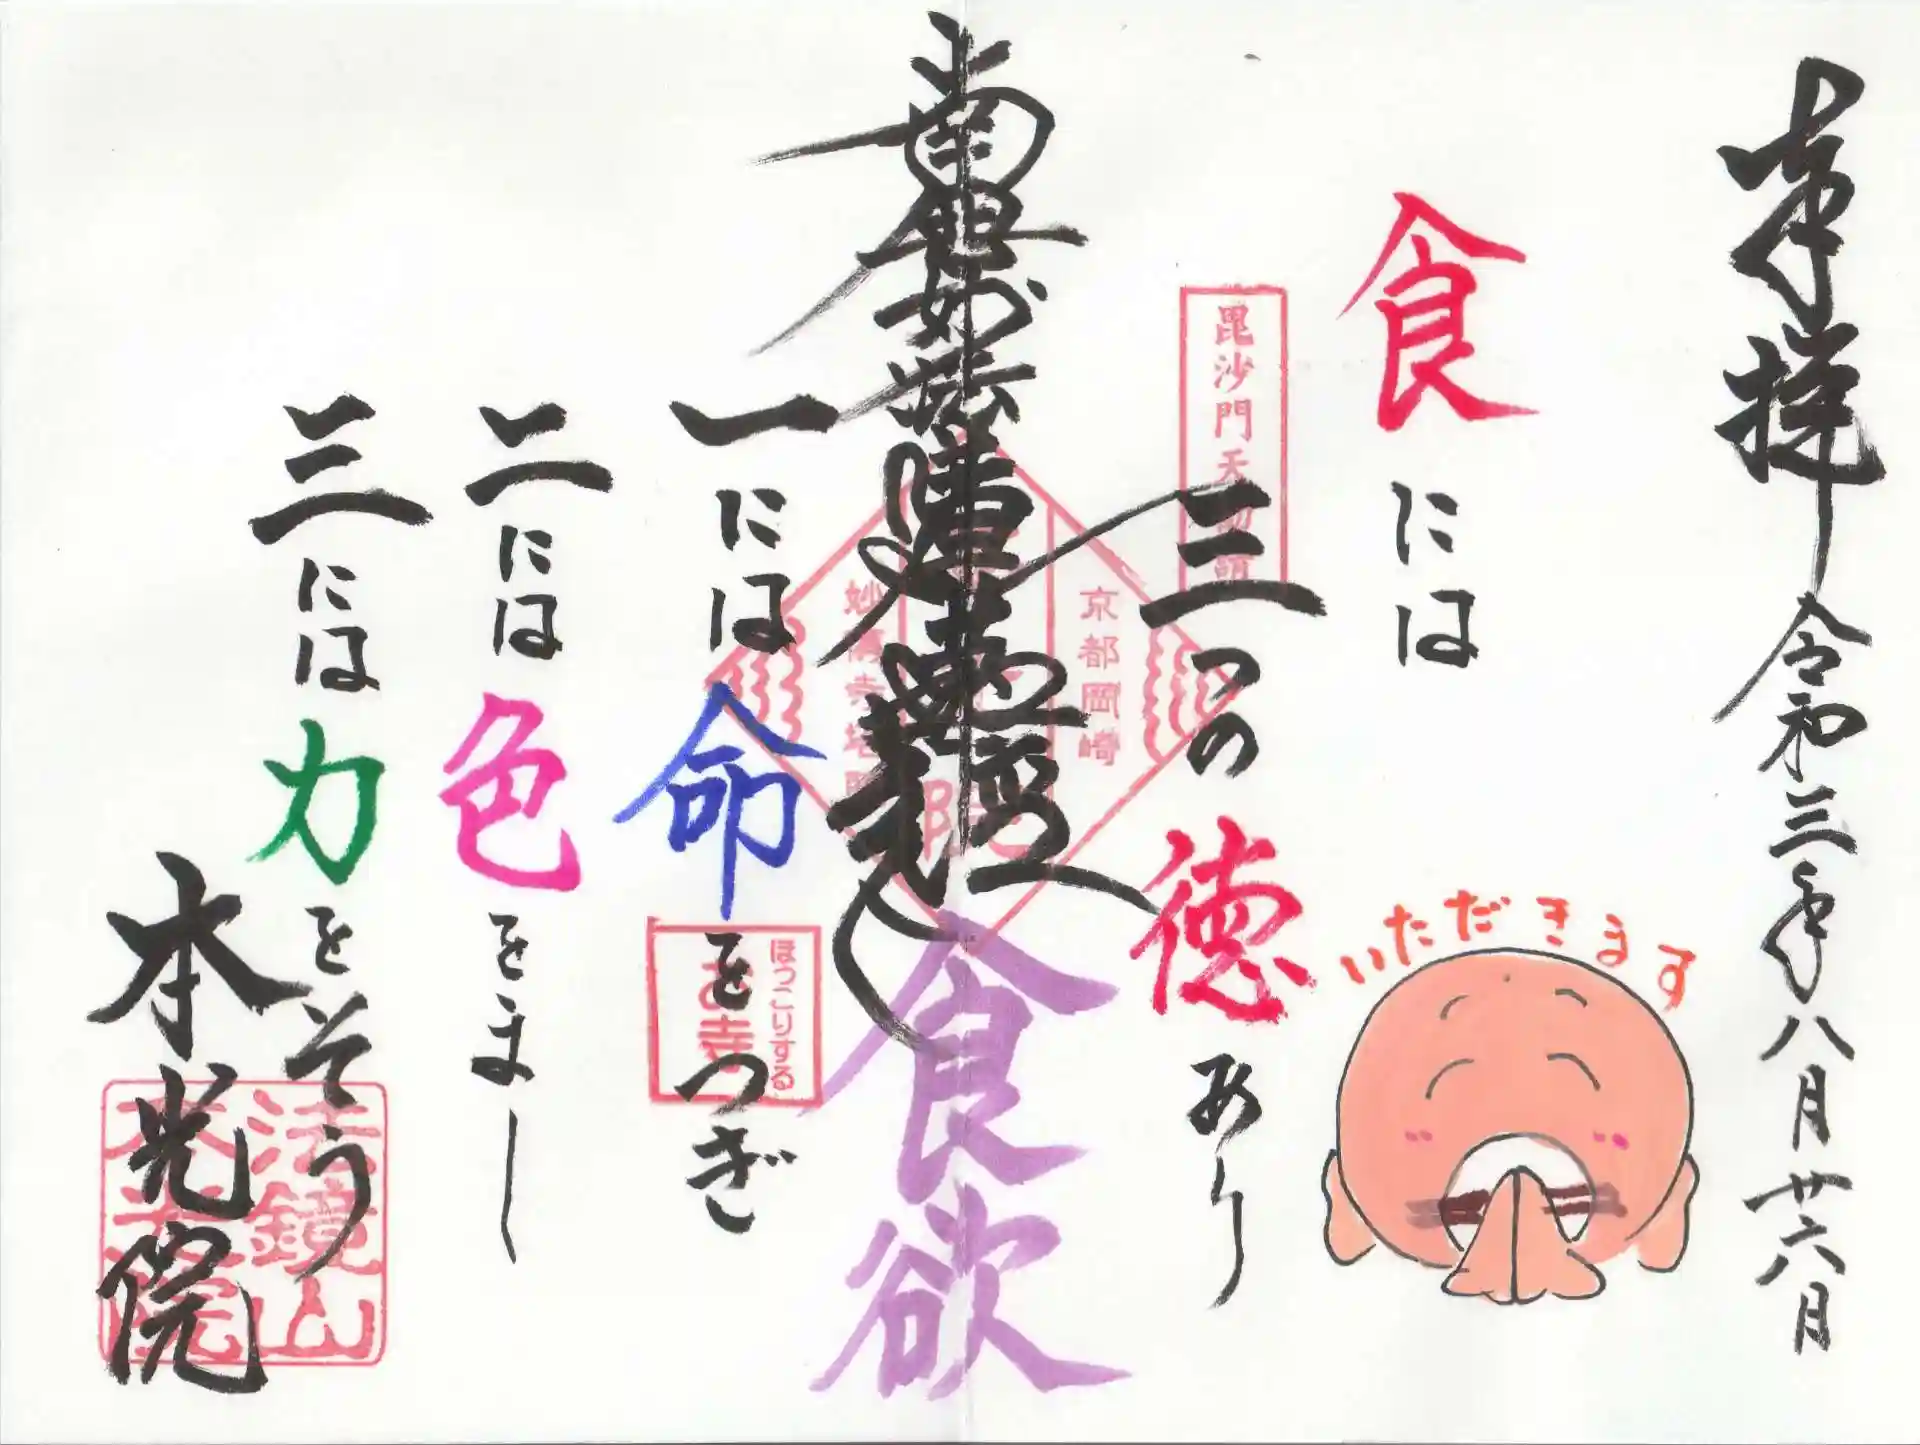 奉拝 令和三年八月廿六月
食には
三つの徳あり
いただきます
毘沙門天
京都岡崎
南無妙法蓮華経
食欲
一には命をつぎ
ほっこりする
お寺
二には色をまし
三には力をそう
本光院
法鏡山